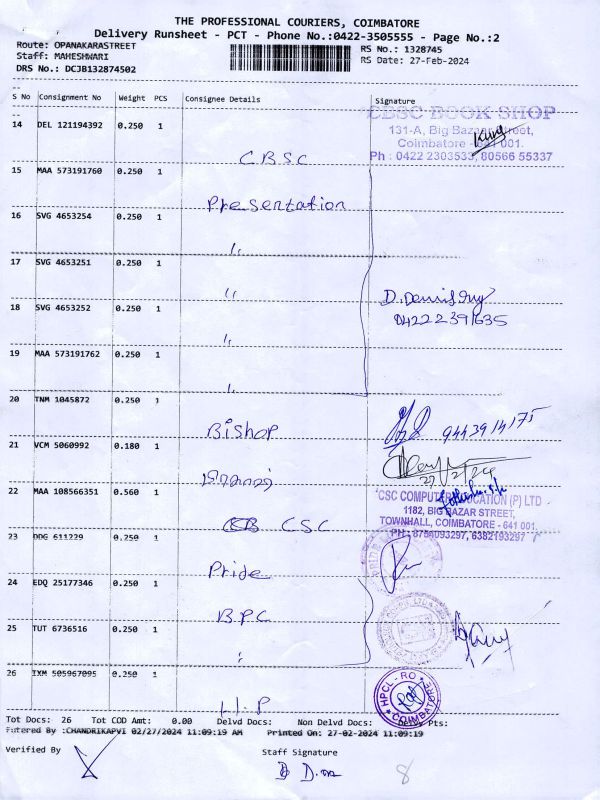 THE PROFESSIONAL COURIERS, COIMBATORE
Delivery Runsheet - PCT - Phone No.:0422-3505555 - Page No.:2
Route: OPANAKARASTREET
Staff: MAHESHWARI
DRS No.: DCJB132874502
RS No.: 1328745
RS Date: 27-Feb-2024
S No Consignment No Weight PCS Consignee Details Signature
CBSC BOOK SHOP
131-A, Big Bazaar Street,
Coimbatore - 641 001.
Ph : 0422 2303533, 80566 55337
14 DEL 121194392 0.250 1
CBSC
15 MAA 573191760 0.250 1
Presentation
16 SVG 4653254 0.250 1
"
17 SVG 4653251 0.250 1
"
D. Dennis
18 SVG 4653252 0.250 1
"
19 MAA 573191762 0.250 1
"
20 TNM 1045872 0.250 1
Bishop
9443914175
21 VCM 5060992 0.180 1
27/2/24
22 MAA 108566351 0.560 1
CSC
CSC COMPUTER EDUCATION (P) LTD
1182, BIG BAZAR STREET,
TOWNHALL, COIMBATORE - 641 001.
PH : 8754093297, 6382193297
23 DDG 611229 0.250 1
Pride
24 EDQ 25177346 0.250 1
B.P.C
25 TUT 6736516 0.250 1
"
26 IXM 505967095 0.250 1
H.P
HPCL - RO
COIMBATORE
Tot Docs: 26 Tot COD Amt: 0.00 Delvd Docs: Non Delvd Docs: Delvy Pts:
Futered By :CHANDRIKAPVI 02/27/2024 11:09:19 AM Printed On: 27-02-2024 11:09:19
Verified By
Staff Signature
8